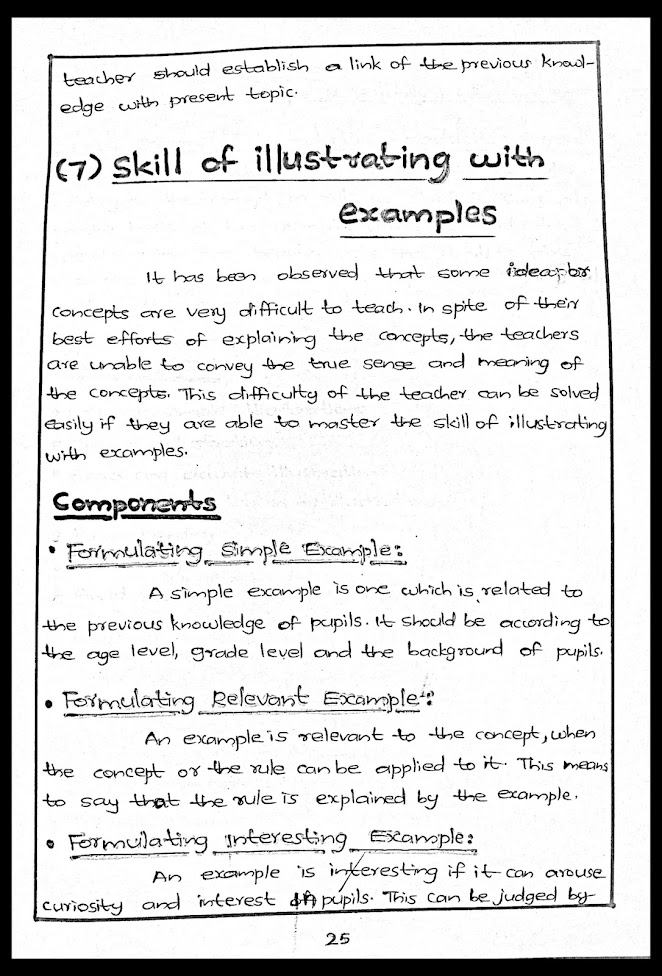 teacher should establish a link of the previous knowl-
edge with present topic.
(7) Skill of illustrating with
examples
It has been observed that some idea, or
concepts are very difficult to teach. In spite of their
best efforts of explaining the concepts, the teachers
are unable to convey the true sense and meaning of
the concepts. This difficulty of the teacher can be solved
easily if they are able to master the skill of illustrating
with examples.
Components
• Formulating Simple Example:
A simple example is one which is related to
the previous knowledge of pupils. It should be according to
the age level, grade level and the background of pupils.
• Formulating Relevant Example:
An example is relevant to the concept, when
the concept or the rule can be applied to it. This means
to say that the rule is explained by the example.
• Formulating Interesting Example:
An example is interesting if it can arouse
curiosity and interest in pupils. This can be judged by
25